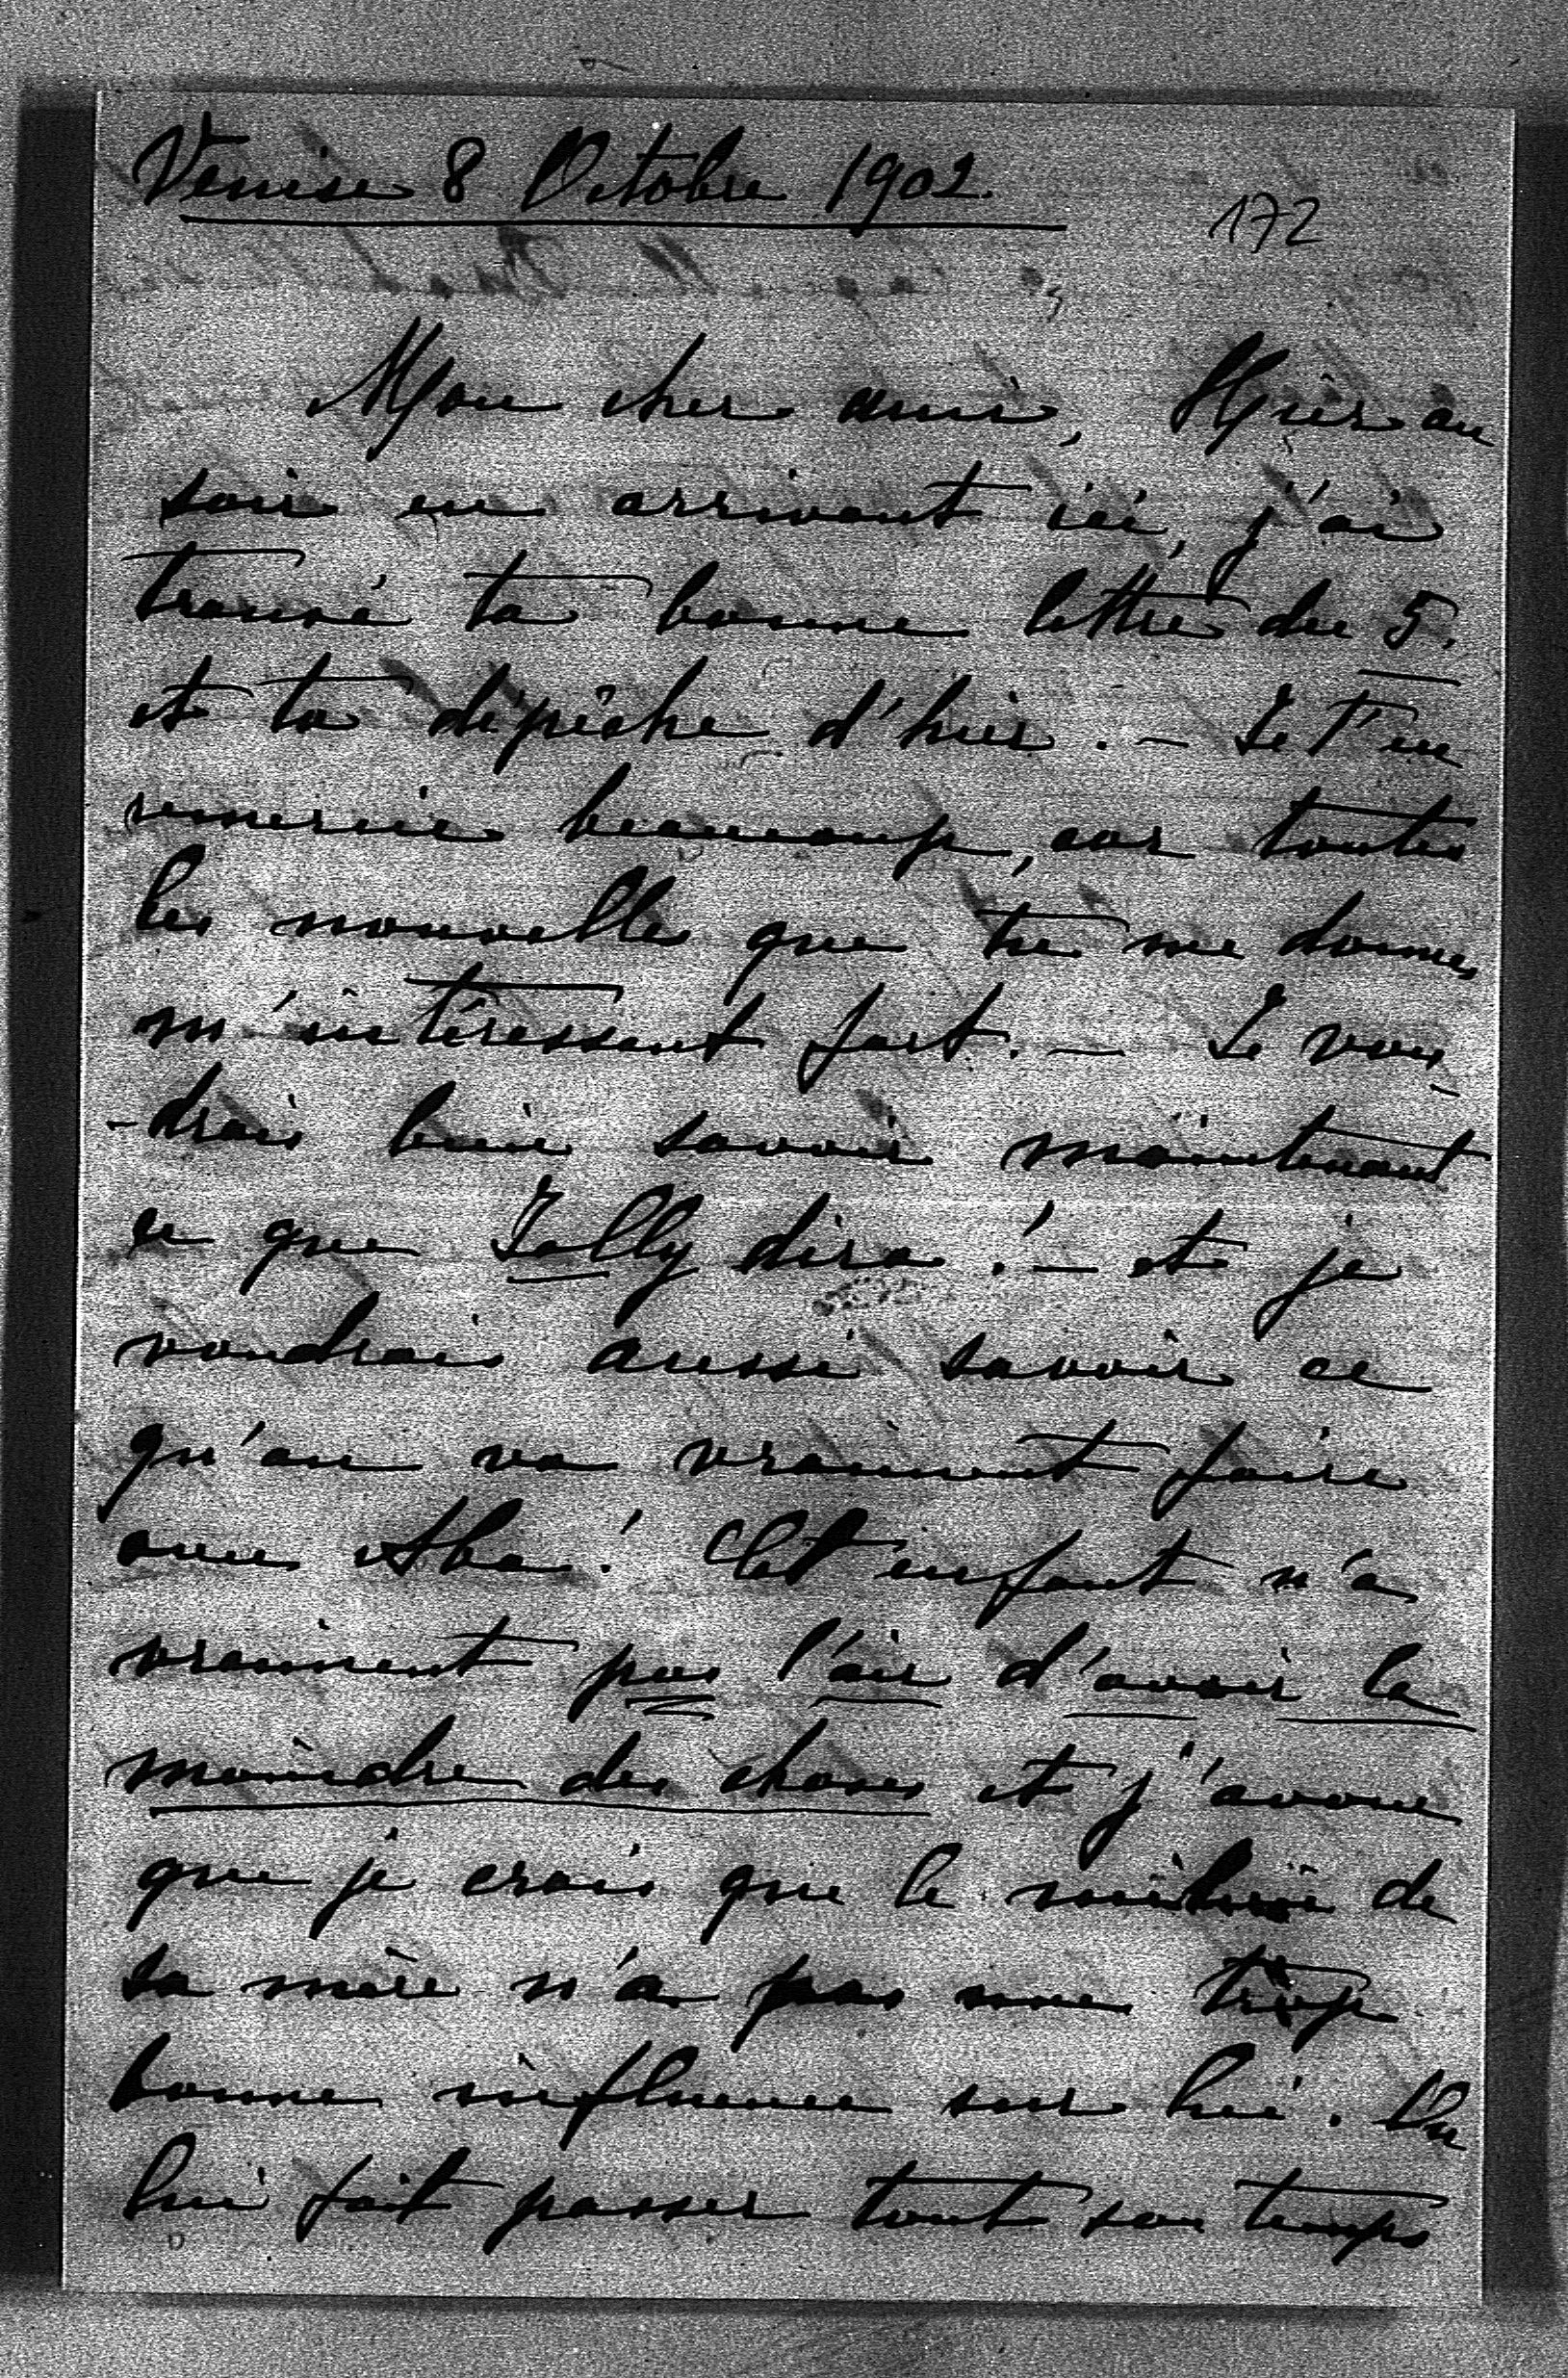 Venise 8 Octobre 1902.
172
Mon cher ami, Hier au
soir en arrivant ici, j'ai
trouvé ta bonne lettre du 5.
et ta dépêche d'hier. – Je t'en
remercie beaucoup, car toutes
les nouvelles que tu me donnes
m'intéressent fort. – Je vou-
-drais bien savoir maintenant
ce que Jolly dira! – et je
voudrais aussi savoir ce
qu'on va vraiment faire
avec Aba! Cet enfant n'a
vraiment pas l'air d'avoir la
moindre des choses et j'avoue
que je crois que le milieu de
sa mère n'a pas une trop
bonne influence sur lui. On
lui fait passer tout son temps